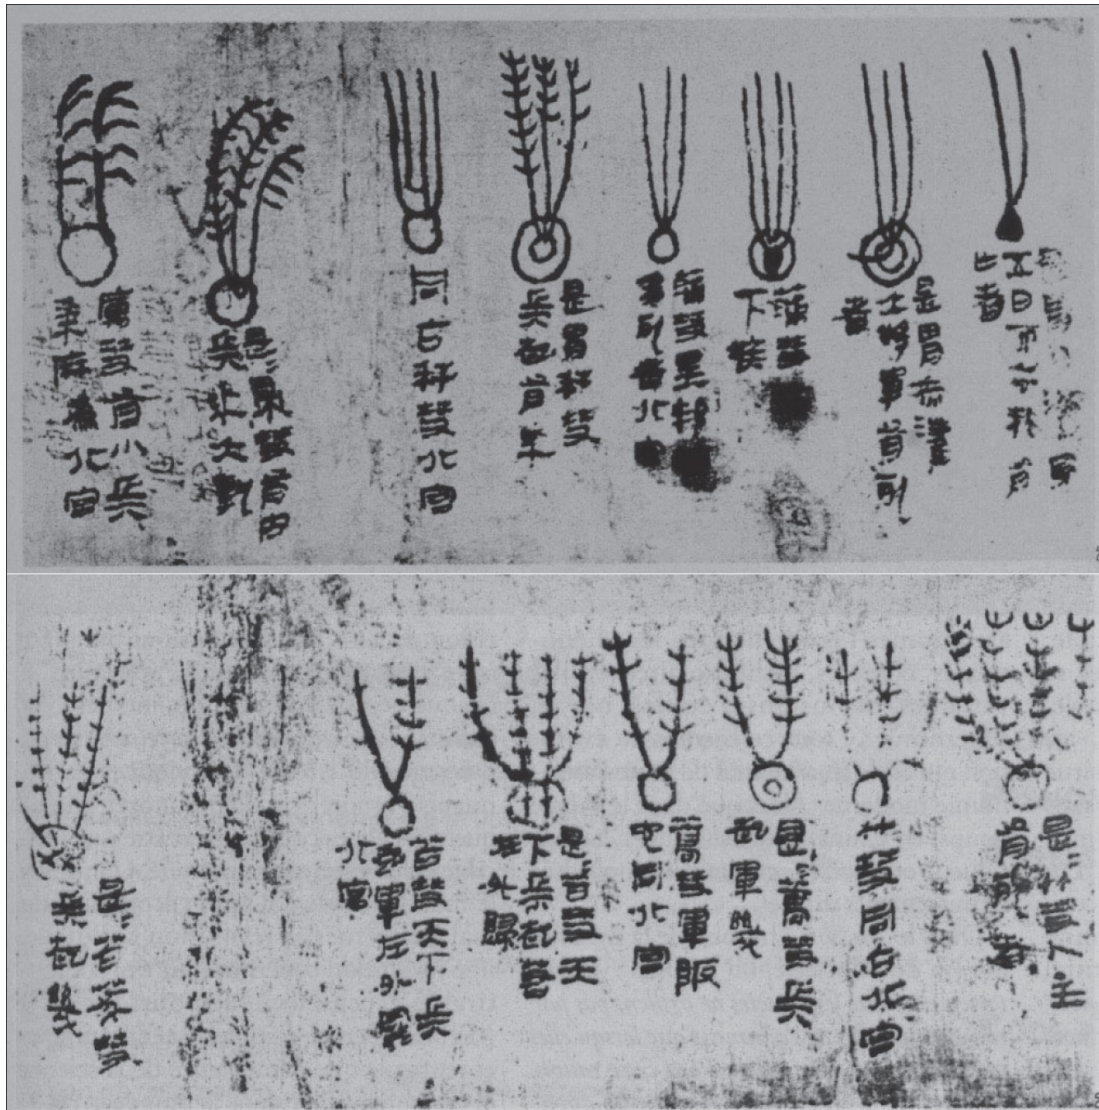 五日
是胃赤灌
大將軍有死
者
蒲彗
下疾
蒲彗星邦
多死者北宮
是胃秆彗
兵起有年
同占秆彗北宮
是=帚彗有内
兵年大孰
厲彗有小兵
黍麻為北宮
是=竹彗人主
有死者
竹彗同占北宮
是=蒿彗兵
起軍幾
蒿彗軍阪
它同北宮
是=苫彗天
下兵起若
在外歸
苫彗天下兵
起軍在外罷
北宮
是=苫彗
兵起幾